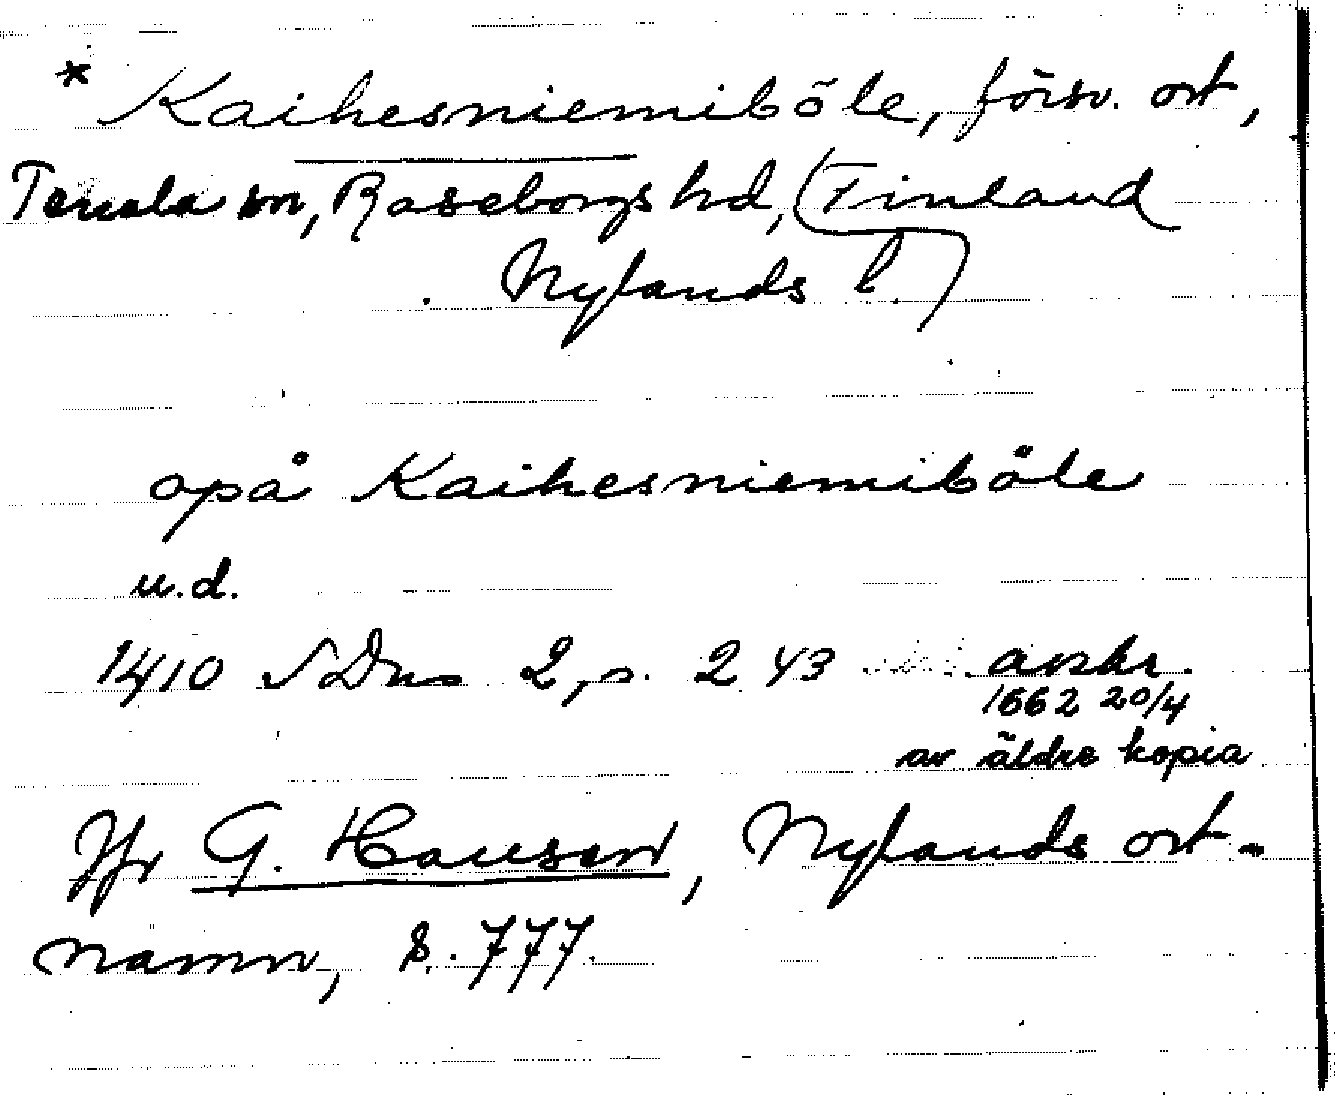 * Kaihesniemiböle, försv. ort,
Tenala sn, Raseborgs hd, (Finland
Nylands l.)
opå Kaihesniemibåle
u.d.
1410 SDns 2, s. 243 avskr.
1662 20/4
av äldre kopia
Jfr G. Hausen, Nylands ort-
namn, s. 777.